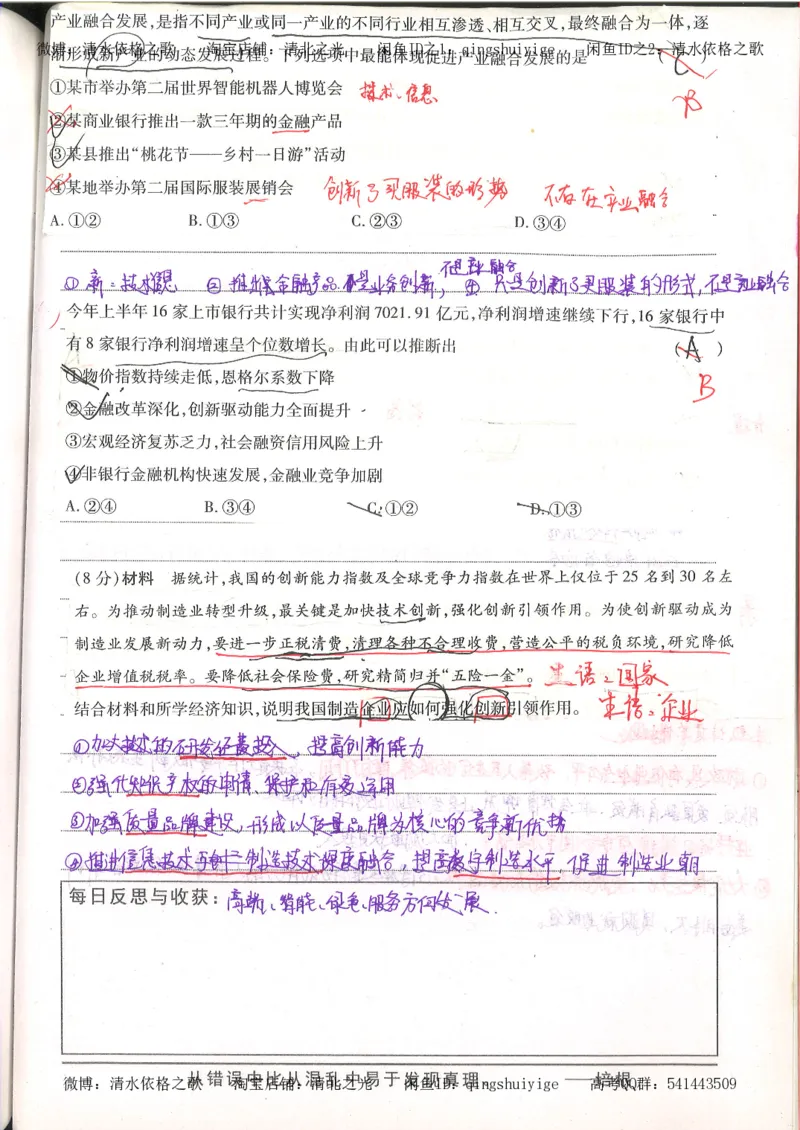 产业融合发展,是指不同产业或同一产业的不同行业相互渗透、相互交叉,最终融合为一体,逐
微博:清水依格之歌 淘宝店铺:清北之光 闲鱼ID之1:qingshuiyige 闲鱼ID之2:清水依格之歌
渐形成新产业的动态发展过程。下列选项中最能体现促进产业融合发展的是 ( C )
①某市举办第二届世界智能机器人博览会 技术、信息
B
②某商业银行推出一款三年期的金融产品
③某县推出“桃花节——乡村一日游”活动
④某地举办第二届国际服装展销会 创新了买服装的形势 不存在产业融合
A.①② B.①③ C.②③ D.③④
不是产业融合
② 推出金融产品 是业务创新, ④ 只是创新了买服装的形式,不是产业融合
今年上半年16家上市银行共计实现净利润7021.91亿元,净利润增速继续下行,16家银行中
有8家银行净利润增速呈个位数增长。由此可以推断出 ( A )
①物价指数持续走低,恩格尔系数下降 B
②金融改革深化,创新驱动能力全面提升
③宏观经济复苏乏力,社会融资信用风险上升
④非银行金融机构快速发展,金融业竞争加剧
A.②④ B.③④ C.①② D.①③
(8分)材料 据统计,我国的创新能力指数及全球竞争力指数在世界上仅位于25名到30名左
右。为推动制造业转型升级,最关键是加快技术创新,强化创新引领作用。为使创新驱动成为
制造业发展新动力,要进一步正税清费,清理各种不合理收费,营造公平的税负环境,研究降低
企业增值税税率。要降低社会保险费,研究精简归并“五险一金”。 主语:国家
结合材料和所学经济知识,说明我国制造企业应如何强化创新引领作用。 主语:企业
①加大技术的研发经费投入,提高创新能力
②强化知识产权的申请、保护和有效运用
③加强质量品牌建设,形成以质量品牌为核心的竞争新优势
④推进信息技术与制造技术深度融合,提高数字制造水平,促进制造业朝
每日反思与收获:高端、智能、绿色、服务方向发展.
从错误中比从混乱中易于发现真理。 ——培根
微博:清水依格之歌 淘宝店铺:清北之光 闲鱼ID:qingshuiyige 高考QQ群:541443509